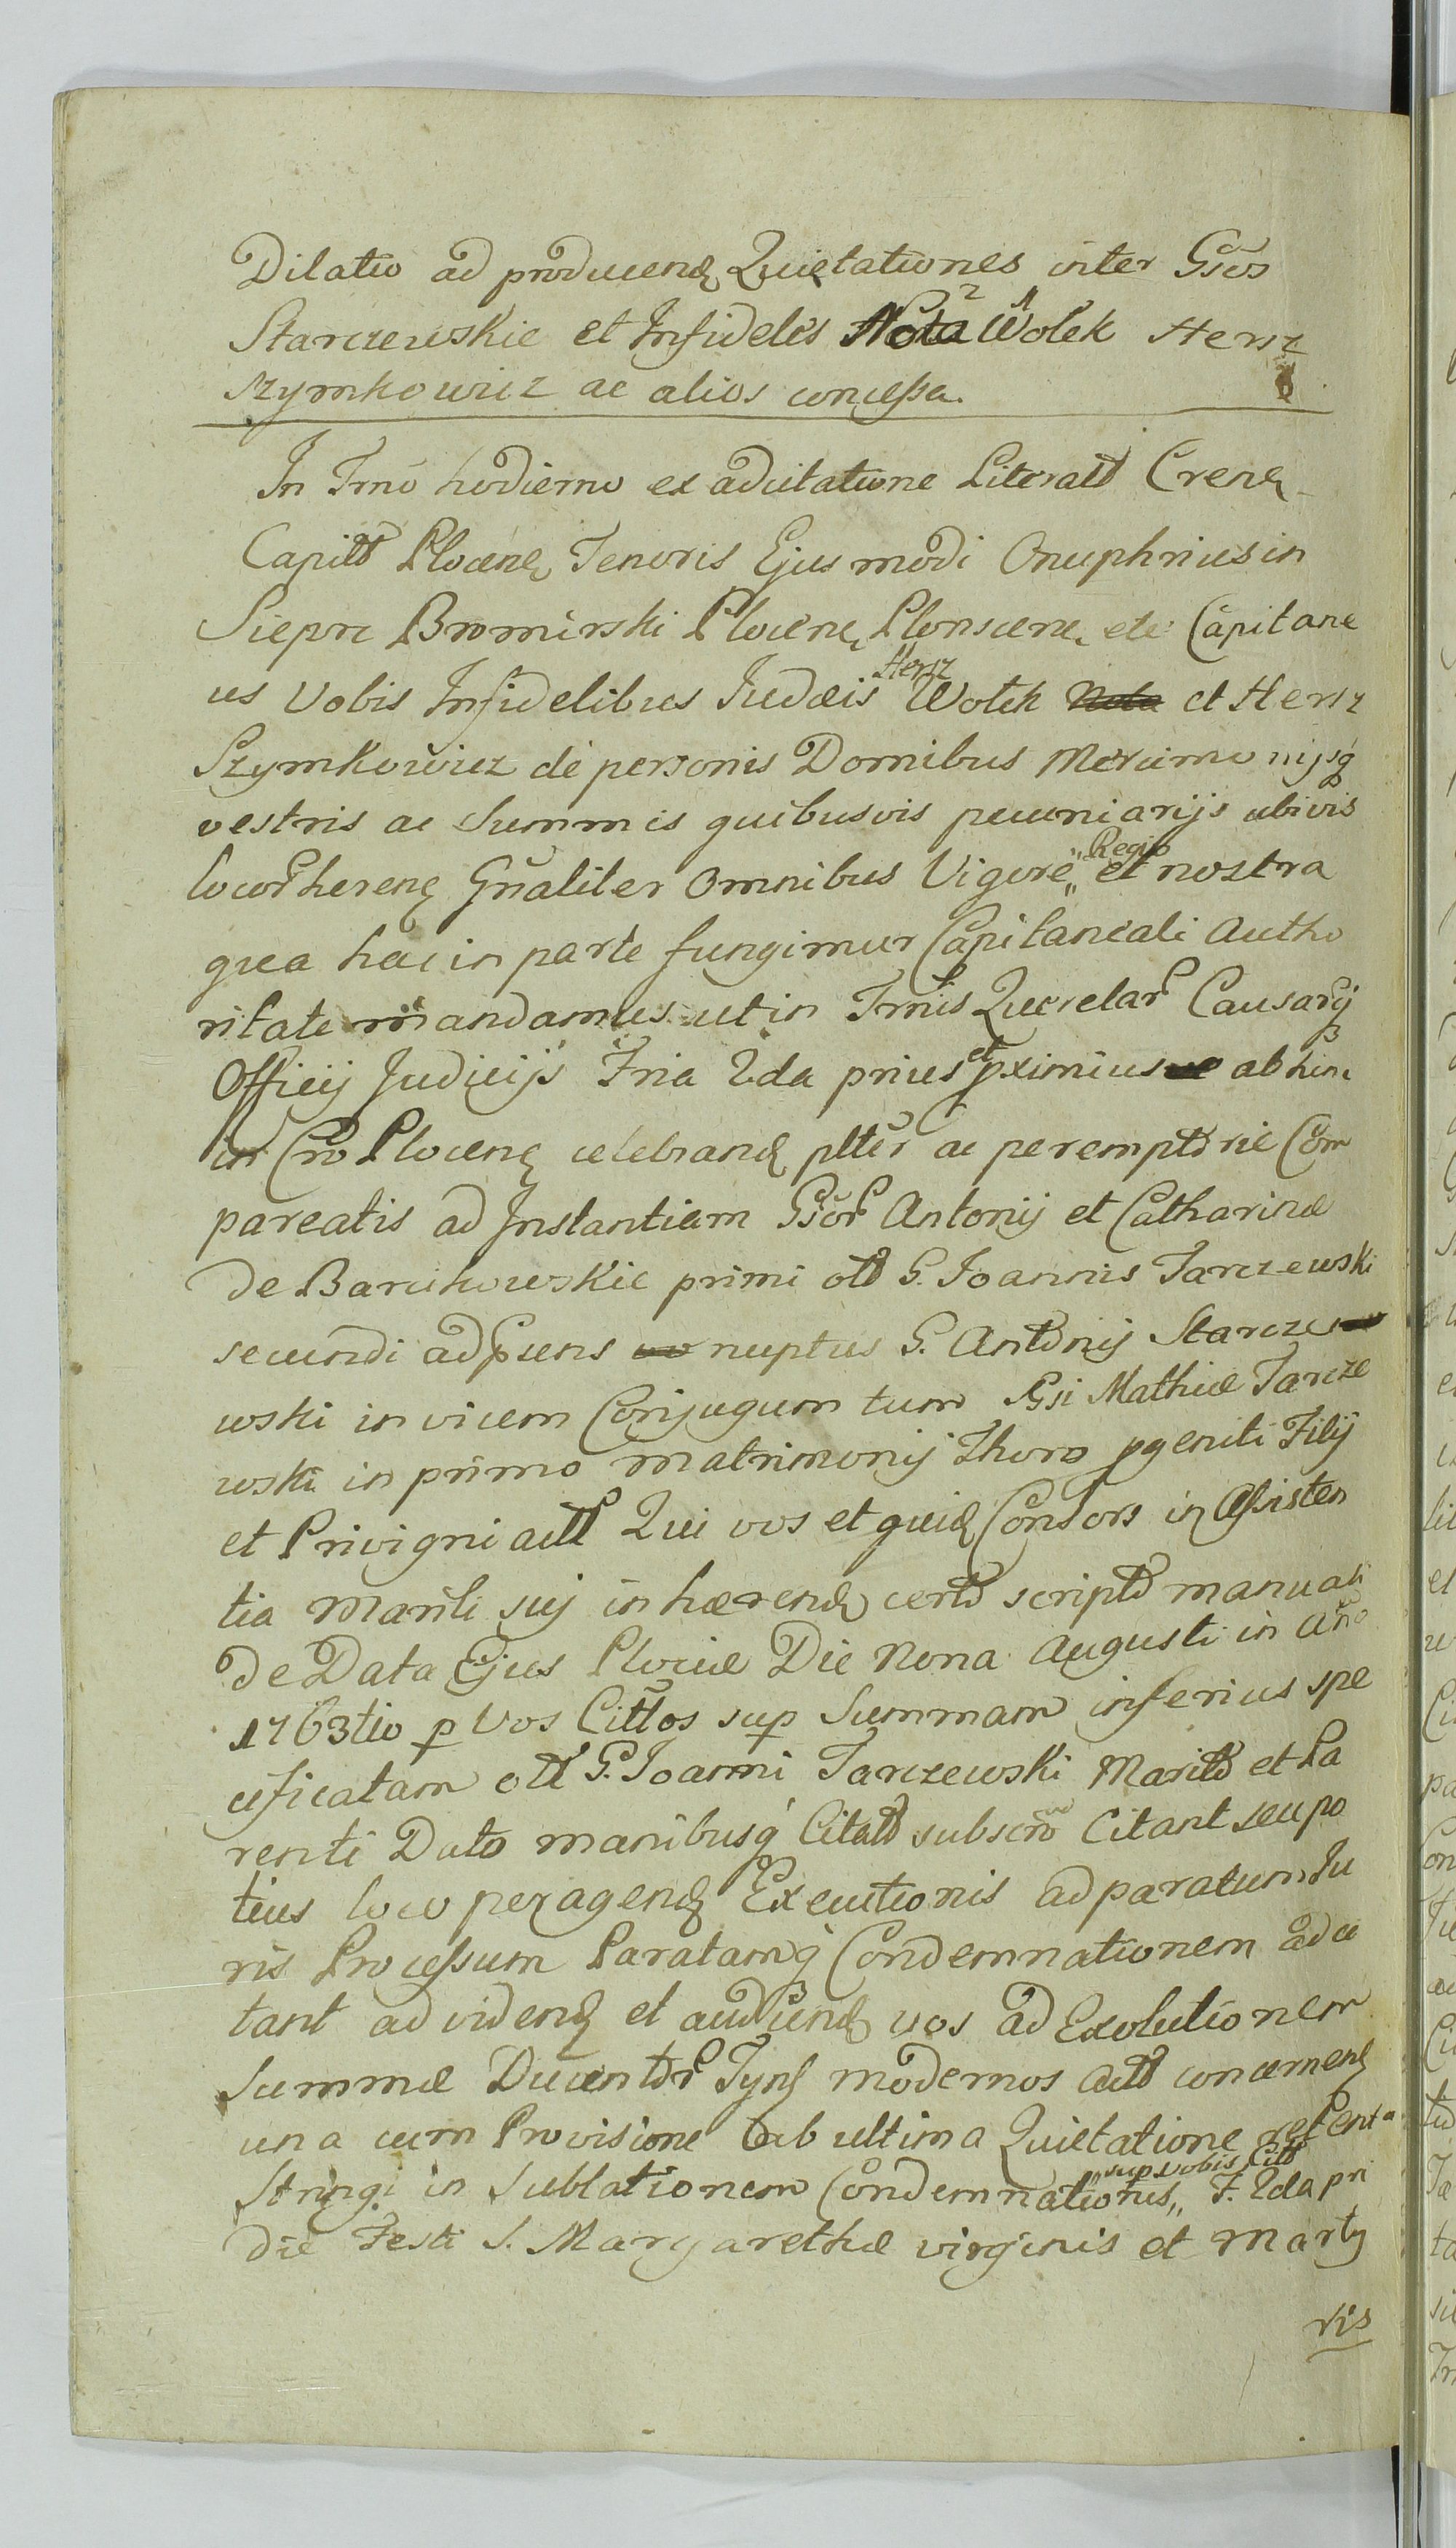 Dilatio ad producend Quietationes inter Gsos
Starczewskie et Infideles Nota ² Wolek ¹ Hersz
Szymkowicz ac alios concessa.
In Trno hodierno ex adcitatione Literali Crens
Capitli Plocens Tenoris Ejusmodi Onuphrius in
Siepre Bromirski Plocens Plonscens etc Capitane
us Vobis Infidelibus Judæis Hersz Wolek et Hersz
Szymkowicz de personis Domibus Mercimonijsq
vestris ac Summis quibusvis pecuniarijs ubivis
locor herens Gnaliter Omnibus Vigore „Regia„ et nostra
qua hac in parte fungimur Capitaneali Autho
ritate mandamus ut in Trnis Querelar Causarq
Officij Judicijs Fria 2da prius et pximius abhinc
in Cro Plocens celebrand plter ac peremptorie Com
pareatis ad Instantiam Gsor Antonij et Catharinæ
de Barcikowskie primi oli G. Joannis Tarczewski
secundi adpsens nuptus G. Antonij Starcze
wski invicem Conjugum tum Gsi Mathiæ Tarcze
wski in primo matrimonij Thoro pgeniti Filij
et Privigni act Qui vos et quid Consors in Assisten
tia Mariti sui inhærend certo scripto manuali
de Data Ejus Plociæ Die Nona Augusti in Ano
1763tio p Vos Cittos sup Summam inferius spe
cificatam oli G. Joanni Tarczewski Marito et Pa
renti Dato manibusq Citat subscro Citant seu po
tius loco peragend Executionis ad paratum Ju
ris Processum Paratamq Condemnationem adci
tant ad vidend et audiend vos ad Exolutionem
Summæ Ducentor Tynf modernos act concernens
una cum Provisione ab ultima Quietatione
Stringi in Sublationem Condemnationis „sup vobis Citt„ F. 2da pri
die Festi S. Margarethæ virginis et Marty
ris